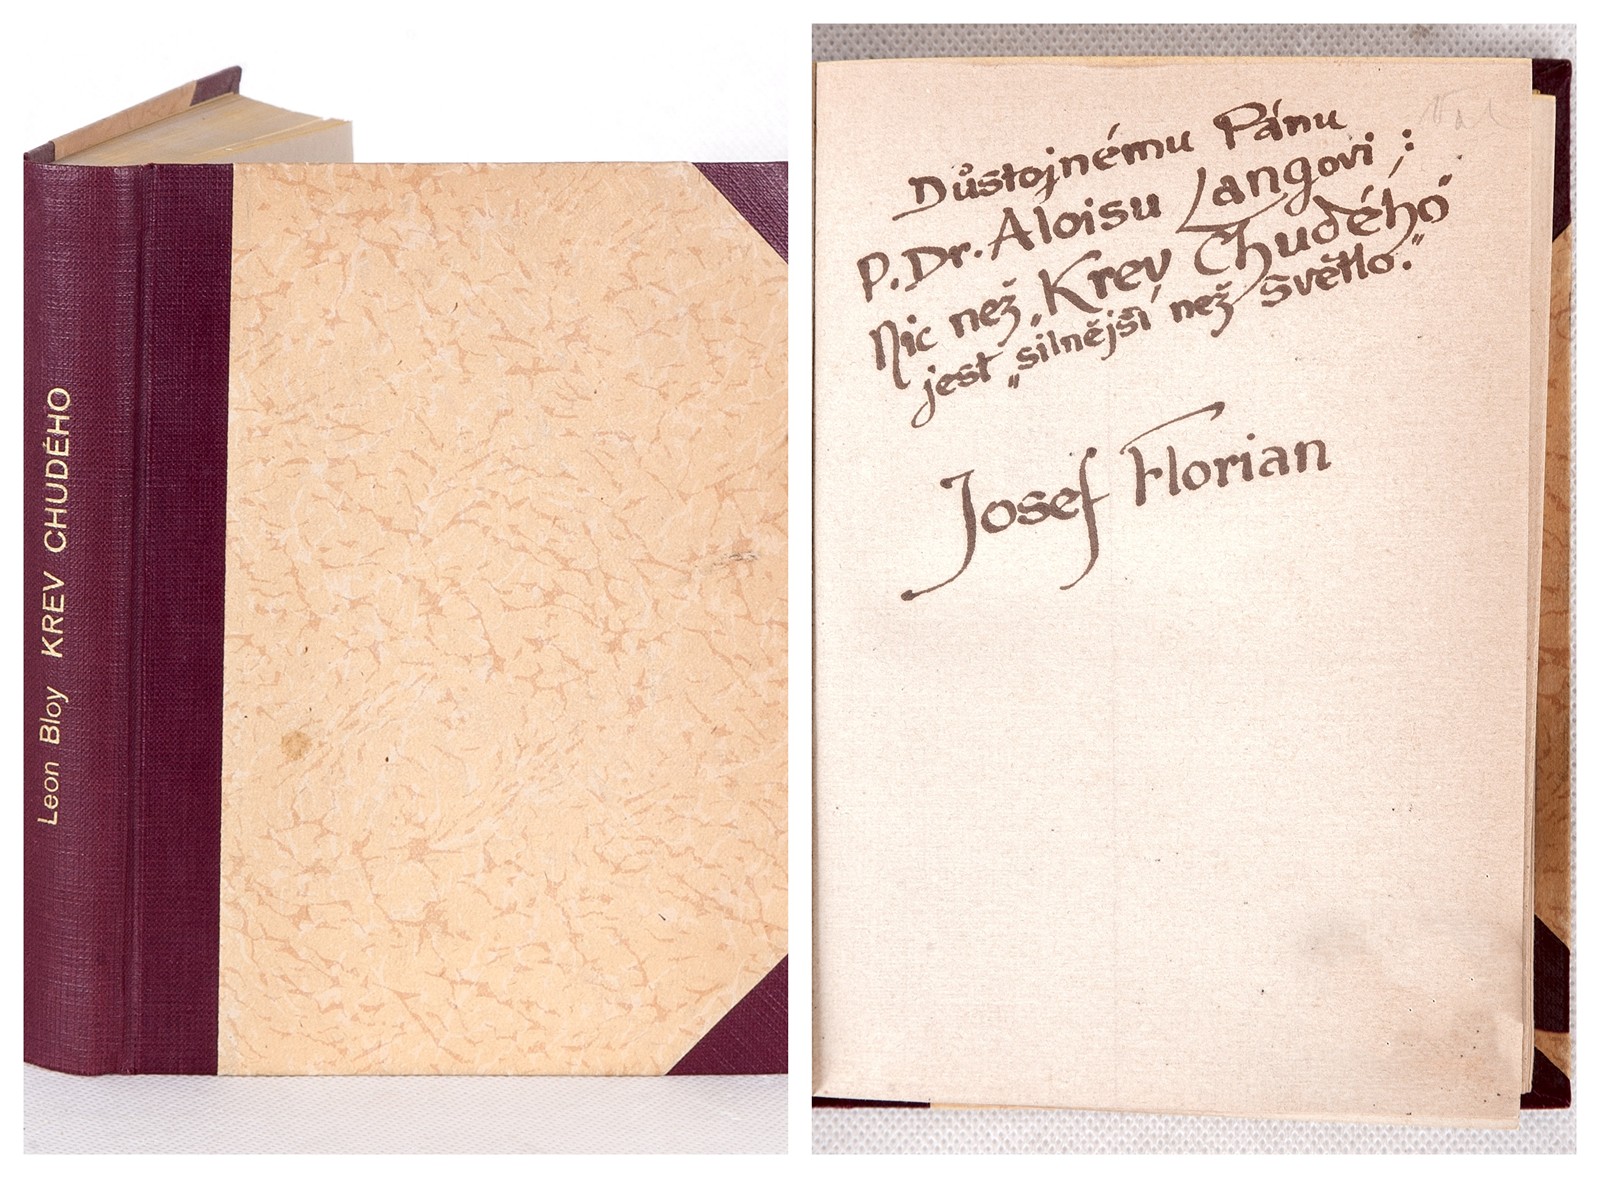 Leon Bloy KREV CHUDÉHO
Důstojnému Pánu
P. Dr. Aloisu Langovi ;
Nic než „Krev Chudého“
jest „silnější než Světlo.“
Josef Florian